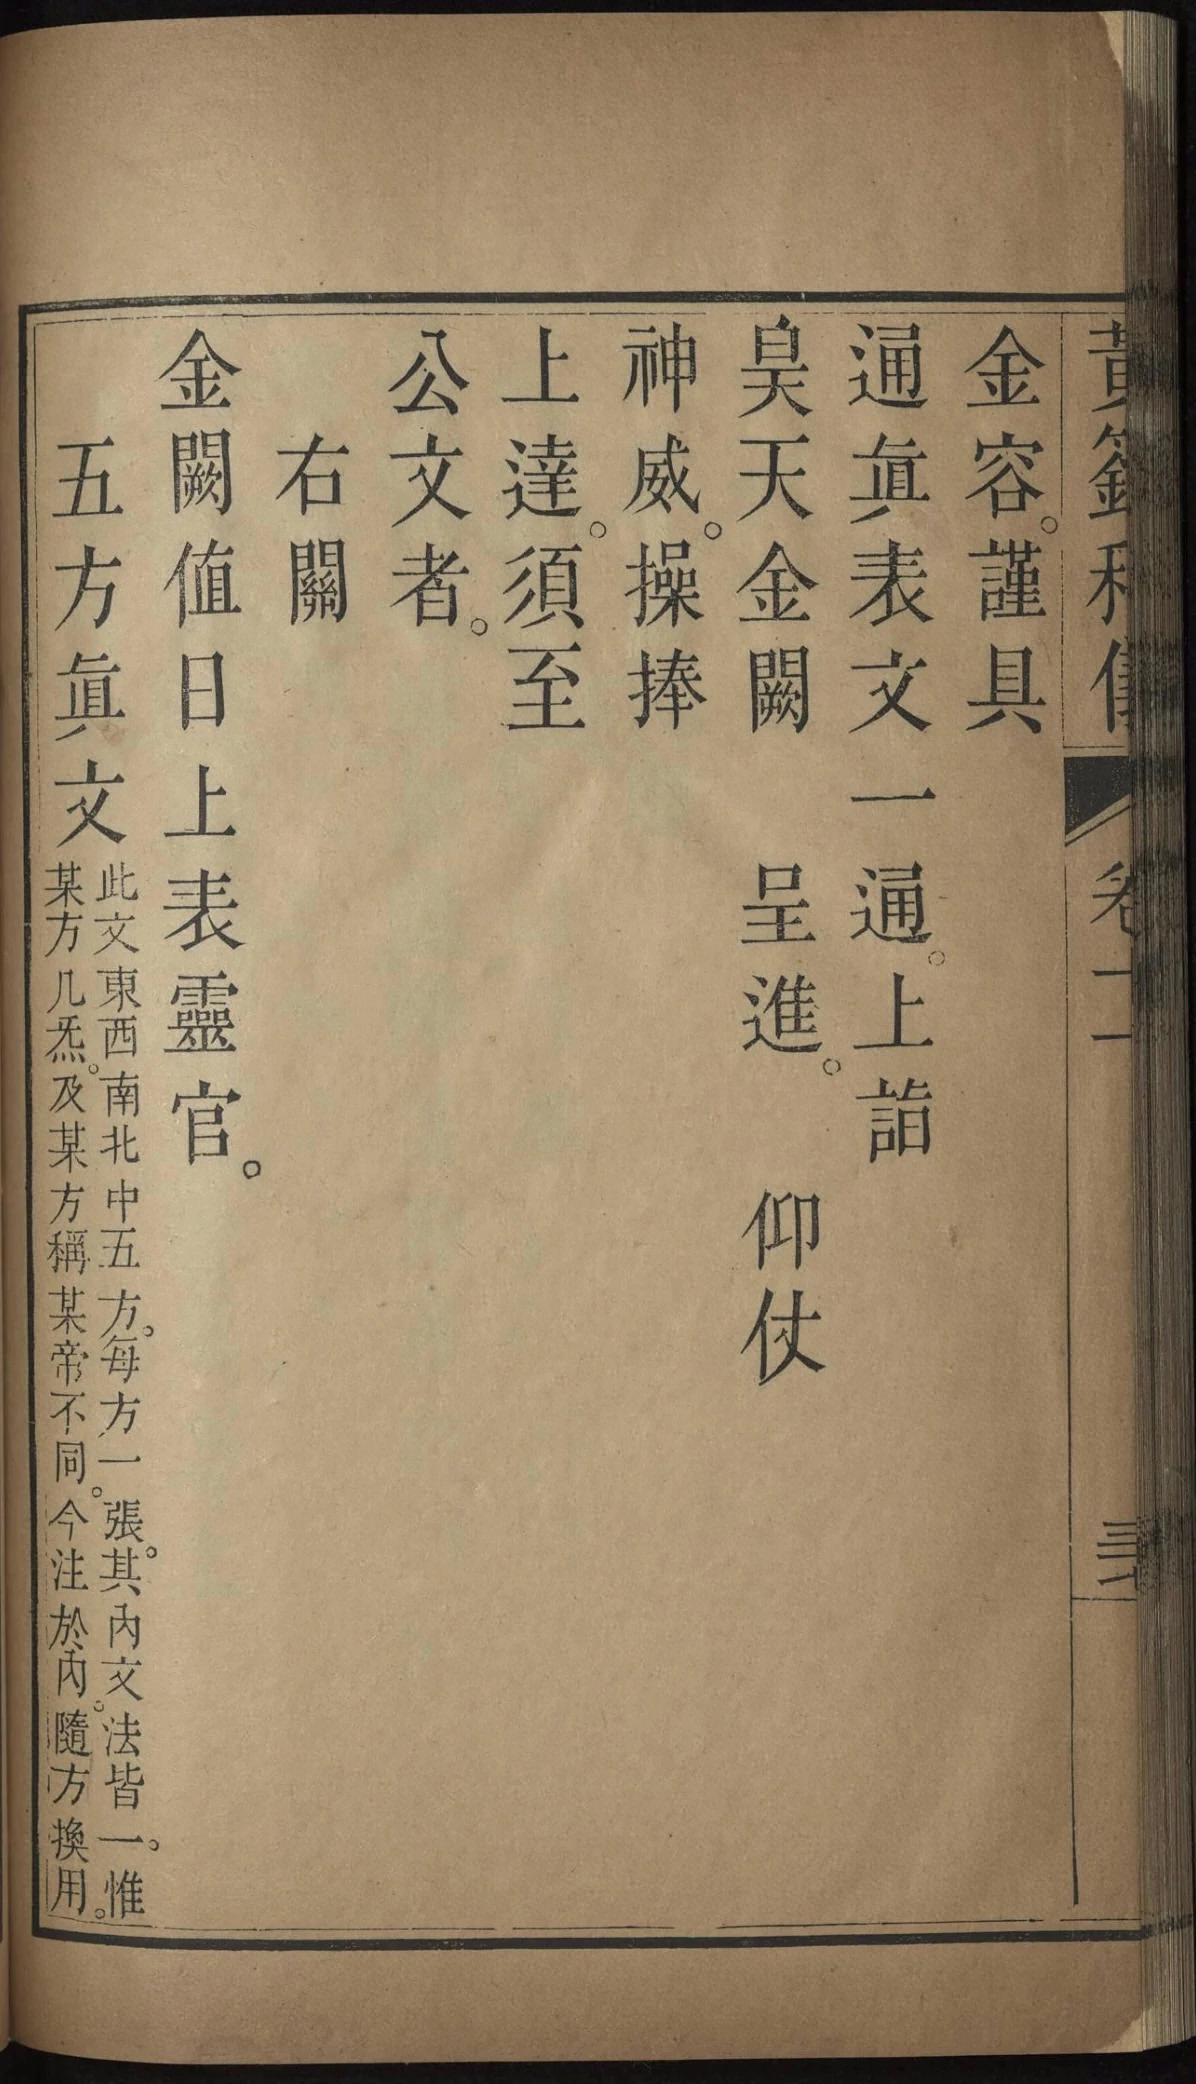 黃籙科儀 卷十一
金容。謹具
通眞表文一通。上詣
昊天金闕 呈進。 仰仗
神威。操捧
上達。須至
公文者。
右關
金闕值日上表靈官。
五方眞文
此文東西南北中五方。每方一張。其內文法皆一。惟
某方几炁。及某方稱某帝不同。今注於內。隨方換用。